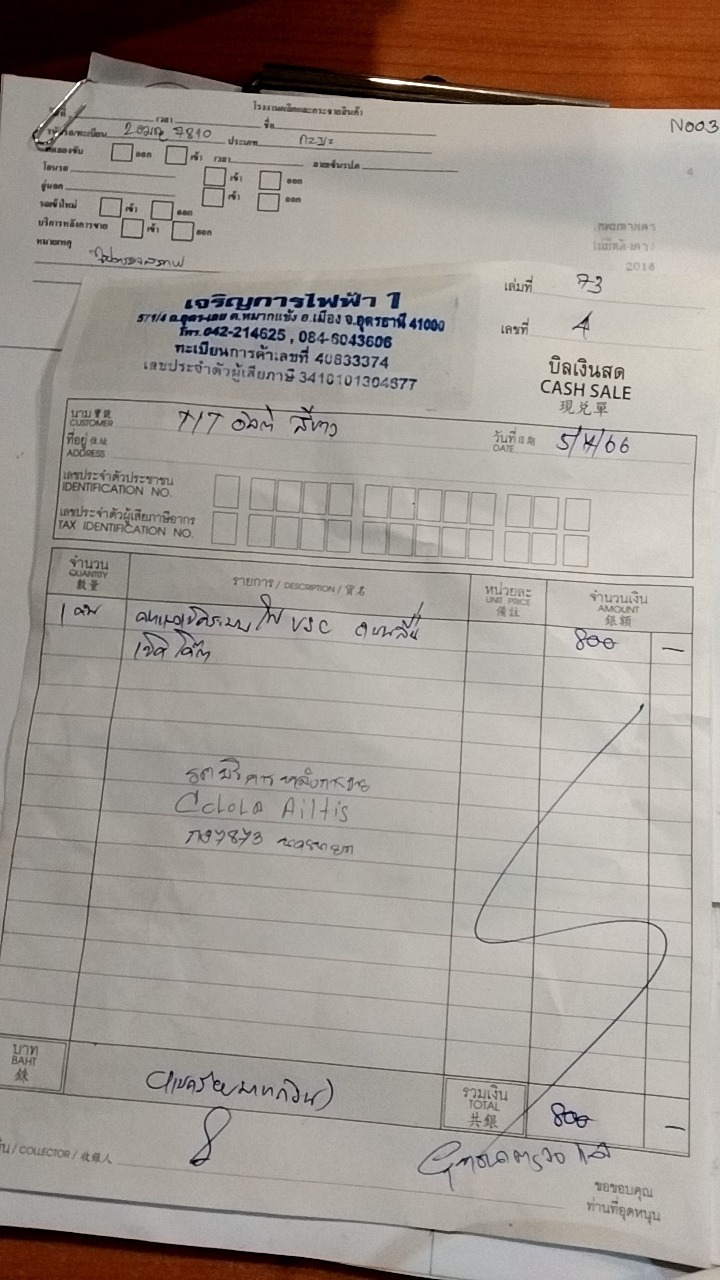 โรงงานผลิตและกระจายสินค้า
N003
เวลา ชื่อ
7810 ประเภท กระบะ
ออก เข้า เวลา
โอนรถ เข้า ออก
เข้า ออก
รถเข้าใหม่ เข้า ออก
บริการหลังการขาย เข้า ออก
หมายเหตุ
2016
เจริญการไฟฟ้า 1
571/4 ถ.อุดร-เลย ต.หมากแข้ง อ.เมือง จ.อุดรธานี 41000
โทร.042-214625 , 084-6043606
ทะเบียนการค้าเลขที่ 40833374
เลขประจำตัวผู้เสียภาษี 3410101304677
เล่มที่ 73
เลขที่ 4
บิลเงินสด
CASH SALE
現兌單
นาม 寶號
CUSTOMER
สีขาว
วันที่ 日期
DATE
ที่อยู่ 住址
ADDRESS
เลขประจำตัวประชาชน
IDENTIFICATION NO.
เลขประจำตัวผู้เสียภาษีอากร
TAX IDENTIFICATION NO.
จำนวน
QUANTITY
數量
รายการ / DESCRIPTION / 貨名
หน่วยละ
UNIT PRICE
備註
จำนวนเงิน
AMOUNT
銀額
1 คัน ระบบไฟ VSC 800 —
รถบริการหลังการขาย
7873
บาท
BAHT
銖
(แปดร้อยบาทถ้วน)
รวมเงิน
TOTAL
共銀
800 —
/ COLLECTOR / 收銀人
ขอขอบคุณ
ท่านที่อุดหนุน